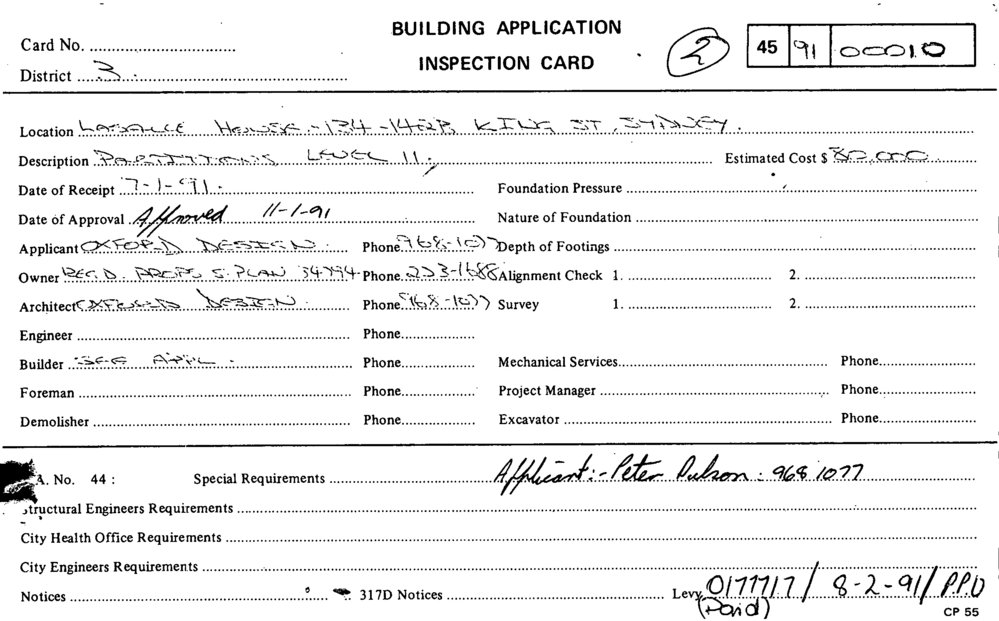 BUILDING APPLICATION
INSPECTION CARD
Card No.
District 3
2
45 91 00010
Location LASALLE HOUSE - 134 - 142B KING ST, SYDNEY.
Description PARTITIONS LEVEL 11, Estimated Cost $ 80,000
Date of Receipt 7-1-91. Foundation Pressure
Date of Approval Approved 11-1-91 Nature of Foundation
Applicant OXFORD DESIGN. Phone 968-1077 Depth of Footings
Owner REG.D. PROPS S. PLAN 34794 Phone 223-1688 Alignment Check 1. 2.
Architect OXFORD DESIGN. Phone 968-1077 Survey 1. 2.
Engineer Phone
Builder SEE APPL. Phone Mechanical Services Phone
Foreman Phone Project Manager Phone
Demolisher Phone Excavator Phone
A. No. 44 : Special Requirements Applicant:- Peter 968 1077
Structural Engineers Requirements
City Health Office Requirements
City Engineers Requirements
Notices 317D Notices Levy 0177717 / 8-2-91 / P.P.U
(Paid)
CP 55